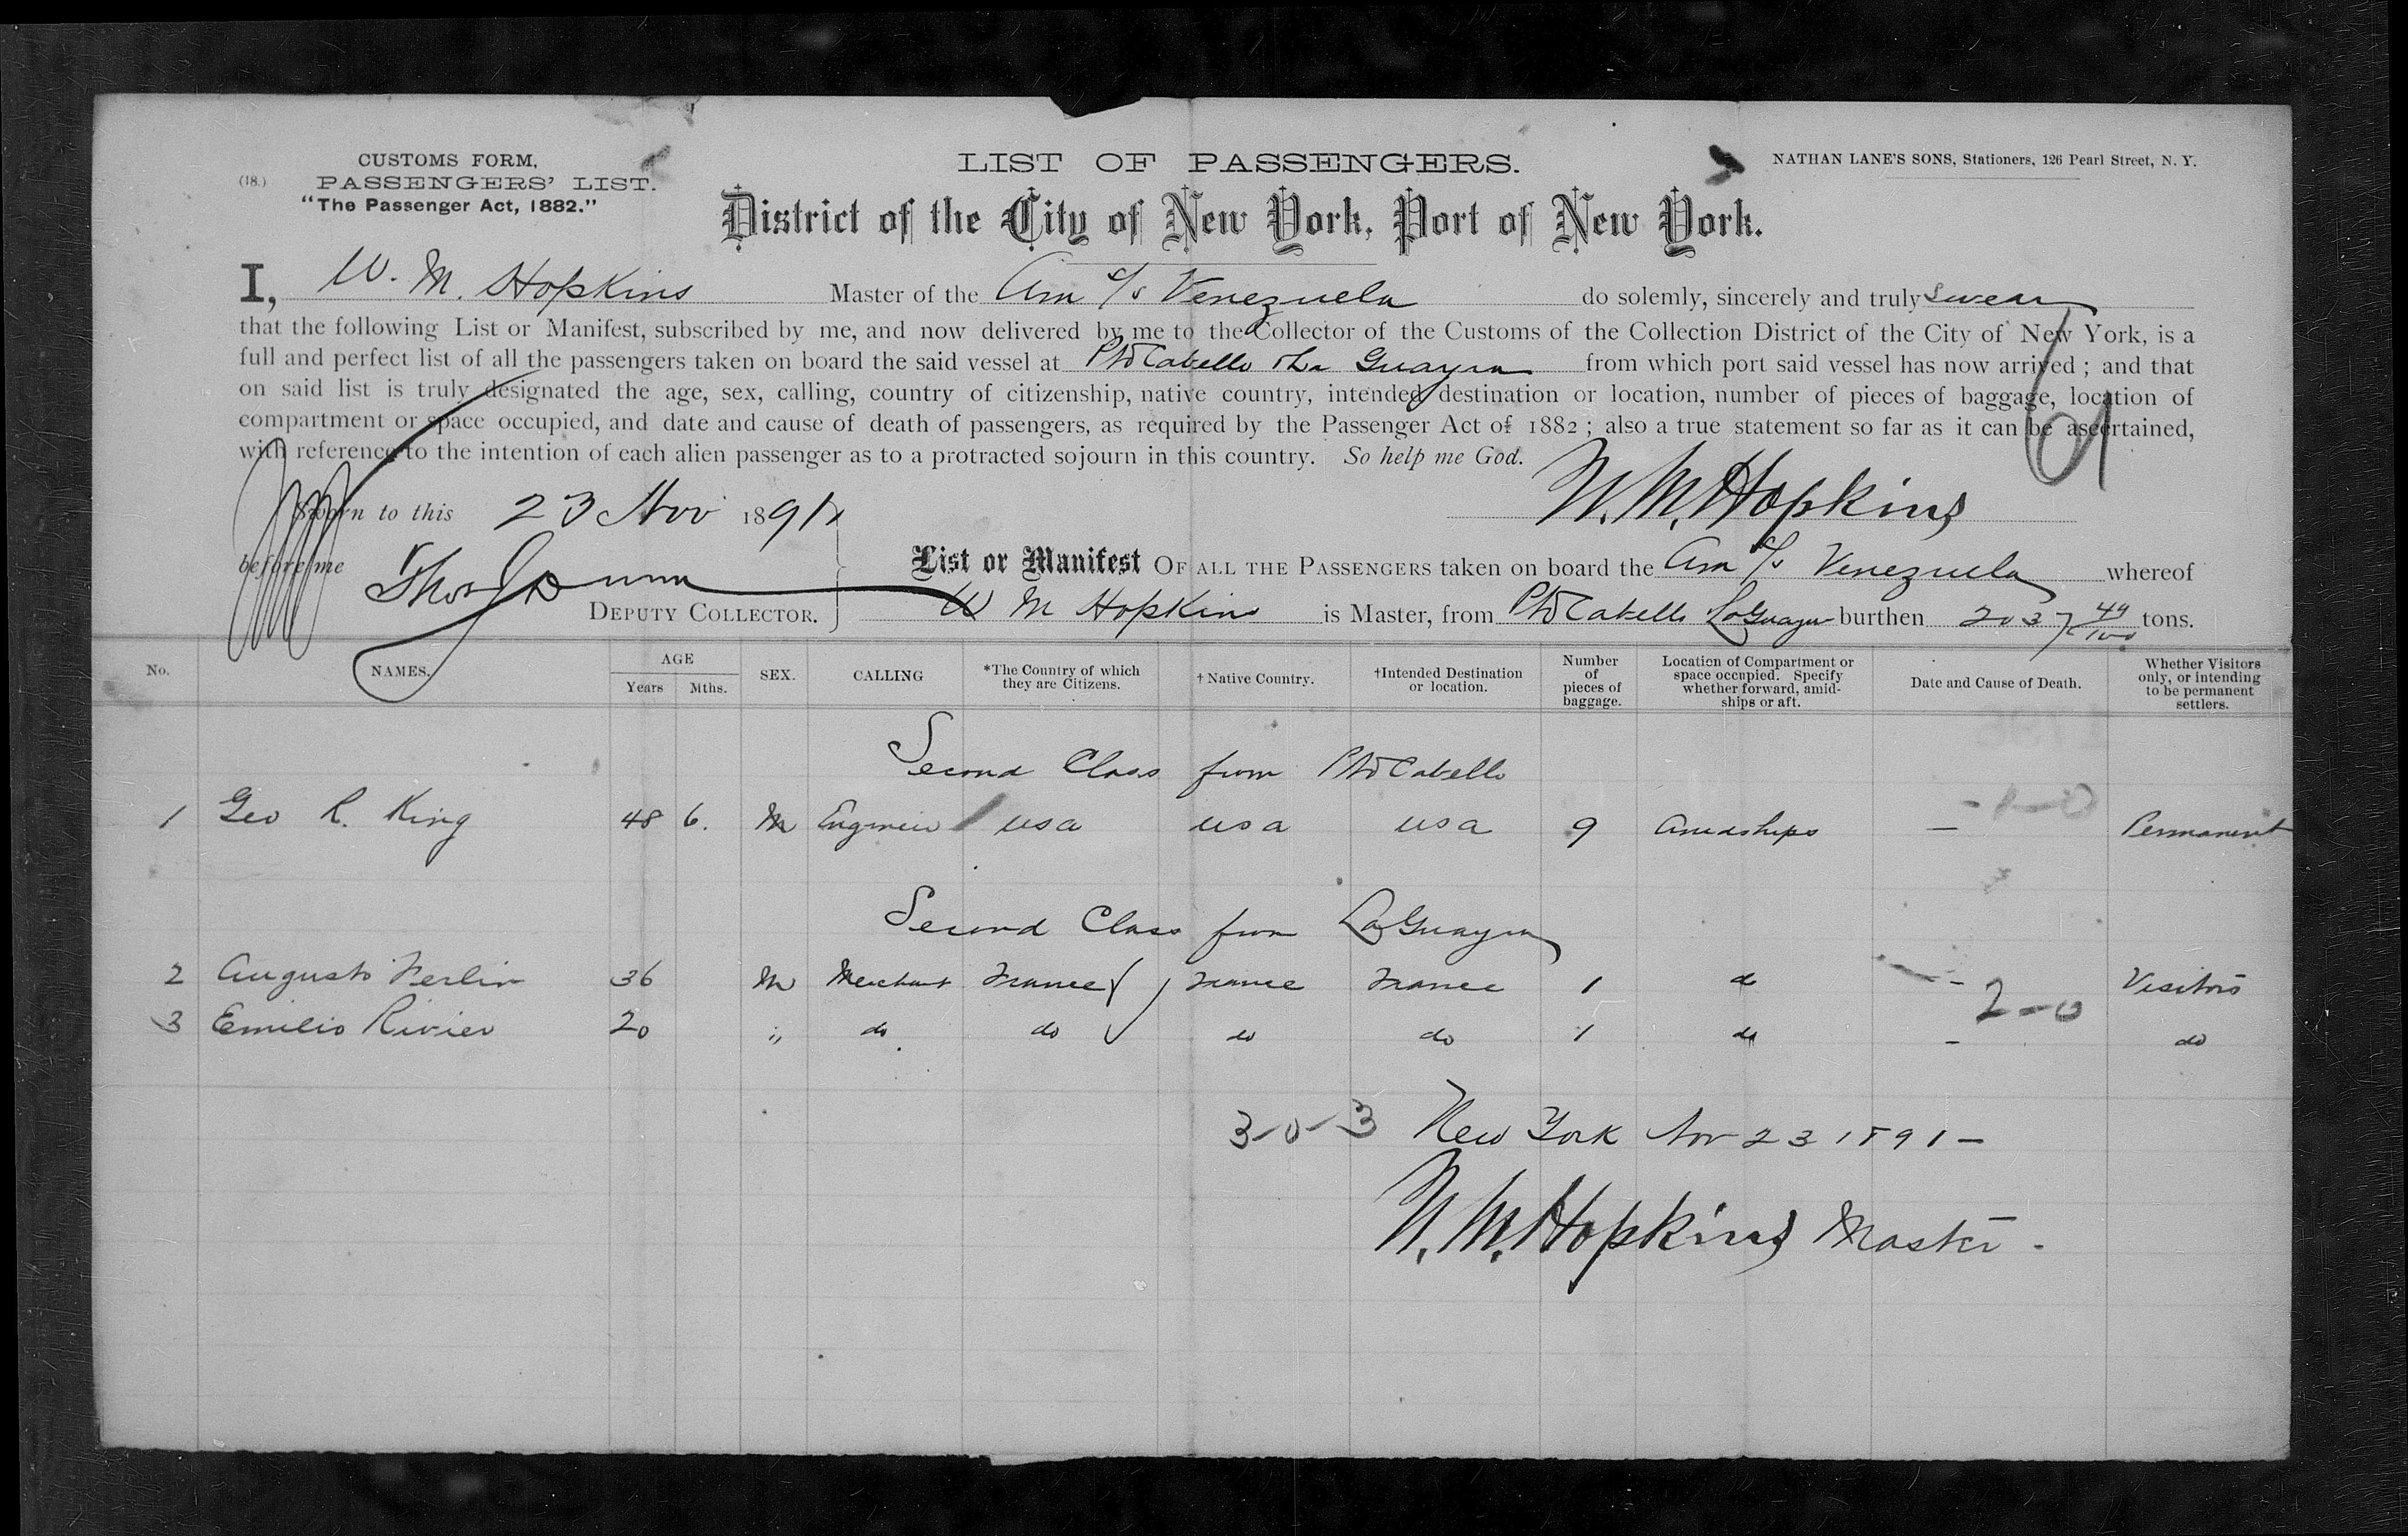 CUSTOMS FORM,
(18.) PASSENGERS' LIST.
"The Passenger Act, 1882."
LIST OF PASSENGERS.
NATHAN LANE'S SONS, Stationers, 126 Pearl Street, N. Y.
District of the City of New York, Port of New York.
I, W. M. Hopkins Master of the Am S/s Venezuela do solemnly, sincerely and truly swear
that the following List or Manifest, subscribed by me, and now delivered by me to the Collector of the Customs of the Collection District of the City of New York, is a
full and perfect list of all the passengers taken on board the said vessel at Pto Cabello & La Guayra from which port said vessel has now arrived; and that
on said list is truly designated the age, sex, calling, country of citizenship, native country, intended destination or location, number of pieces of baggage, location of
compartment or space occupied, and date and cause of death of passengers, as required by the Passenger Act of 1882; also a true statement so far as it can be ascertained,
with reference to the intention of each alien passenger as to a protracted sojourn in this country. So help me God.
Sworn to this 23 Nov 1891 W. M. Hopkins
before me Thos Dunn
DEPUTY COLLECTOR.
List or Manifest OF ALL THE PASSENGERS taken on board the Am S/s Venezuela whereof
W M Hopkins is Master, from Pto Cabello La Guayra burthen 2037 49/100 tons.
No. NAMES. AGE Years Mths. SEX. CALLING *The Country of which they are Citizens. †Native Country. †Intended Destination or location. Number of pieces of baggage. Location of Compartment or space occupied. Specify whether forward, amidships or aft. Date and Cause of Death. Whether Visitors only, or intending to be permanent settlers.
Second Class from Pto Cabello
1 Geo R. King 48 6. M Engineer usa usa usa 9 Amidships — Permanent
Second Class from La Guayra
2 Augusto Ferlin 36 M Merchant France France France 1 do - Visitors
2-0
3 Emilio Rivier 20 " do do do do 1 do - do
3-0-3 New York Nov 23 1891 —
W. M. Hopkins Master.